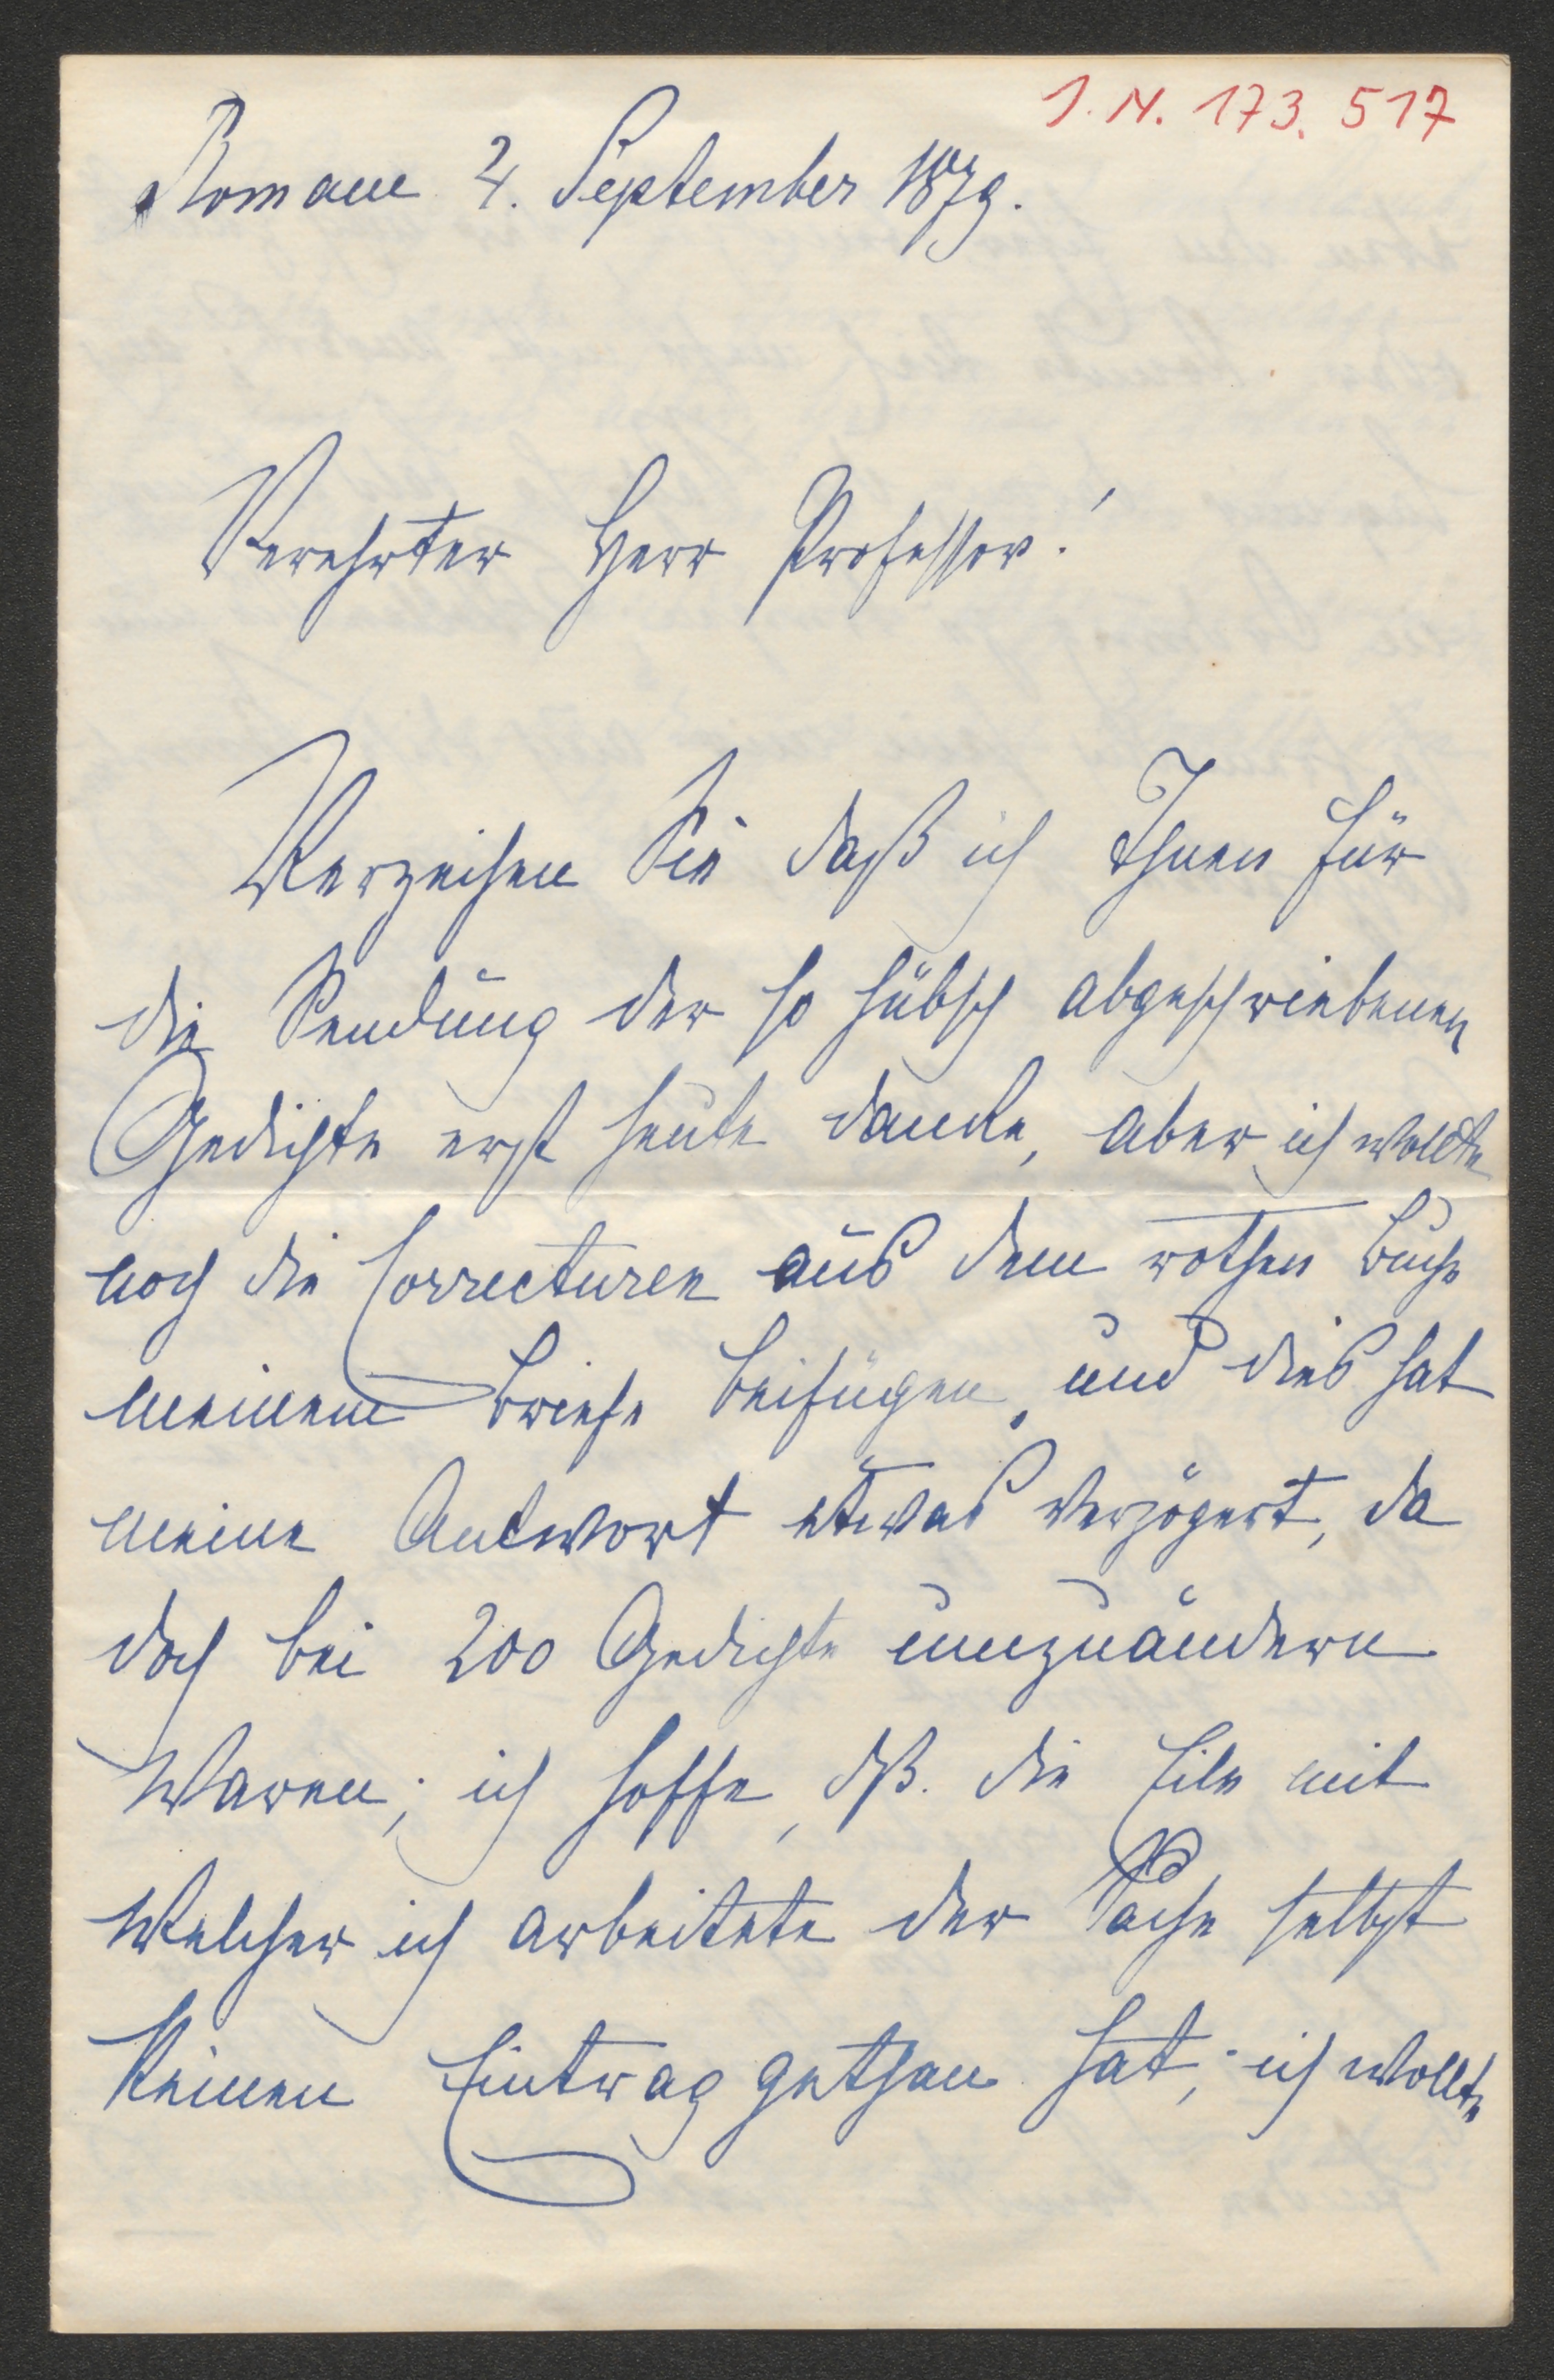 I. N. 173. 517
Romau 4. September 1879.
Verehrter Herr Professor!
Verzeihen Sie daß ich Ihnen für
die Sendung der so hübsch abgeschriebenen
Gedichte erst heute danke, aber ich wollte
noch die Correcturen aus dem rothen Buche
meinem Briefe beifügen, und dies hat
meine Antwort etwas verzögert, da
doch bei 200 Gedichte umzuändern
waren; ich hoffe, dß. die Eile mit
welcher ich arbeitete der Sache selbst
keinen Eintrag gethan hat; ich wollte